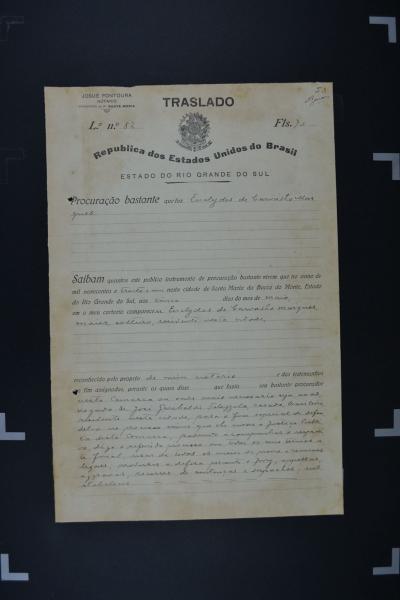 JOSUÉ FONTOURA
NOTARIO
SANTA MARIA
TRASLADO
L.º n.º 82
Fls. 
Republica dos Estados Unidos do Brasil
ESTADO DO RIO GRANDE DO SUL
Procuração bastante que faz Euclydes de Carvalho Mar
ques
Saibam quantos este publico instrumento de procuração bastante virem que no anno de
mil novecentos e trinta e um nesta cidade de Santa Maria da Bocca do Monte, Estado
do Rio Grande do Sul, aos cinco dias do mez de maio,
em o meu cartorio compareceu Euclydes de Carvalho Marques,
maior, solteiro, residente nesta cidade,
reconhecido pelo proprio de mim notario e das testemunhas
ao fim assignadas, perante as quaes disse que fazia seu bastante procurador
nesta Comarca ou onde mais necessario seja ao ad
vogado dr. José
residente nesta cidade, para o fim especial de defen
del-o no processo crime que lhe move a Justiça Publi
ca desta Comarca, podendo acompanhar o
dito processo em todos os seus termos
final, usar de todos os meios de prova
produzir a defesa perante o jury, appellar,
aggravar, recorrer de sentenças e despachos, sub
stabelecer